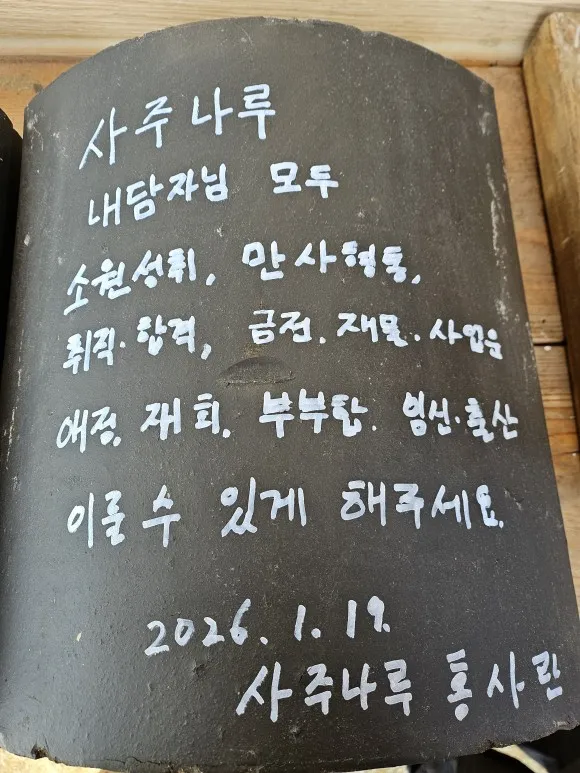 사주나루
내담자님 모두
소원성취, 만사형통,
취직·합격, 금전. 재물·사업운
애정. 재회. 부부합. 임신·출산
이룰 수 있게 해주세요.
2026. 1. 19.
사주나루 홍사란